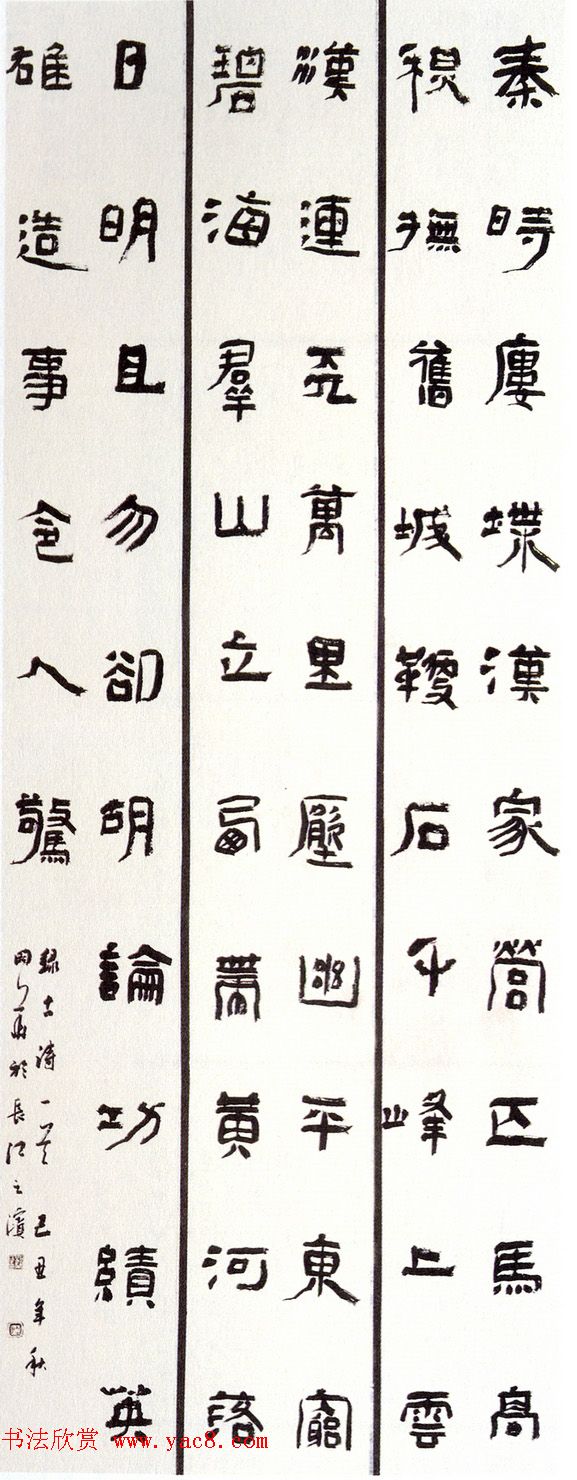 秦時廔堞漢家營匹馬高
秋撫舊城鞭石千峰上雲
漢連天萬里壓幽平東窮
碧海羣山立西帶黃河落
日明且勿卻胡論功績英
雄造事令人驚
錄古詩一首 己丑年秋
於長江之濱
书法欣赏 www.yac8.com